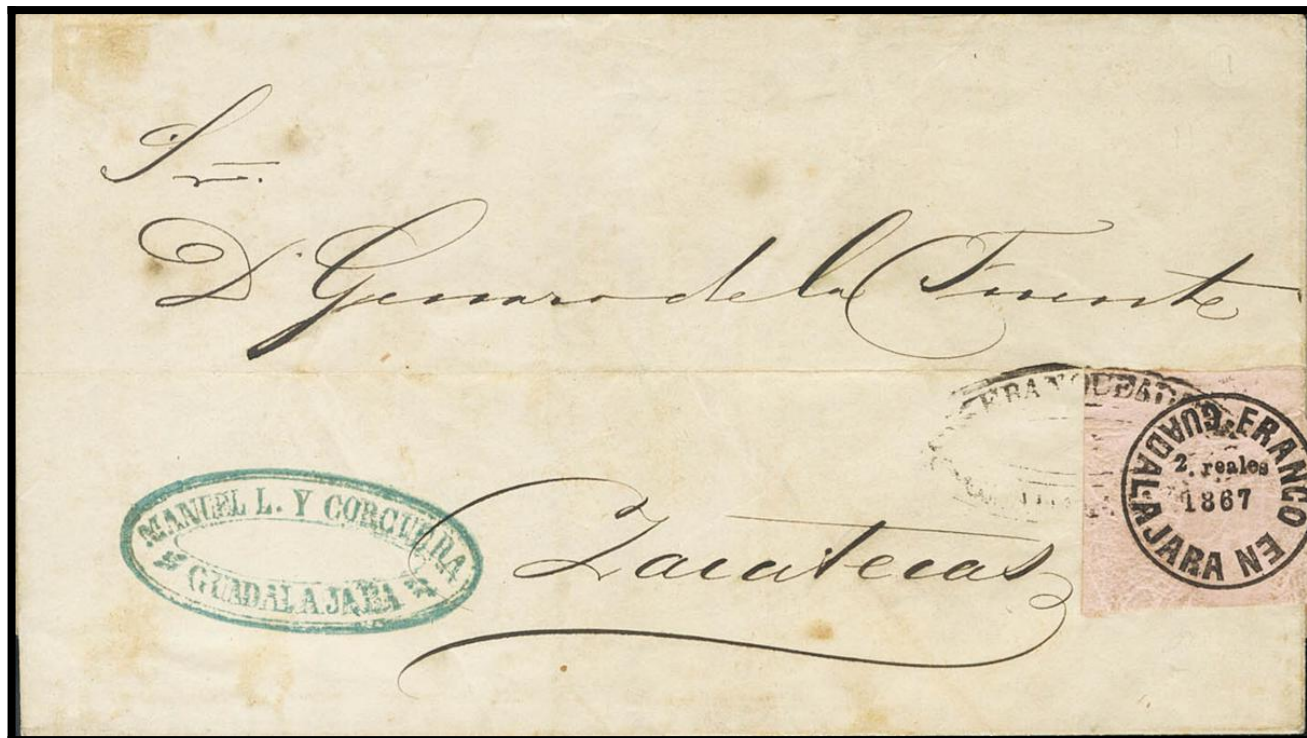 Sr.
D. Genaro de la Fuente
Zacatecas
MANUEL L. Y CORCUERA
GUADALAJARA
FRANQUEADO
FRANCO EN
GUADALAJARA
2. reales
1867